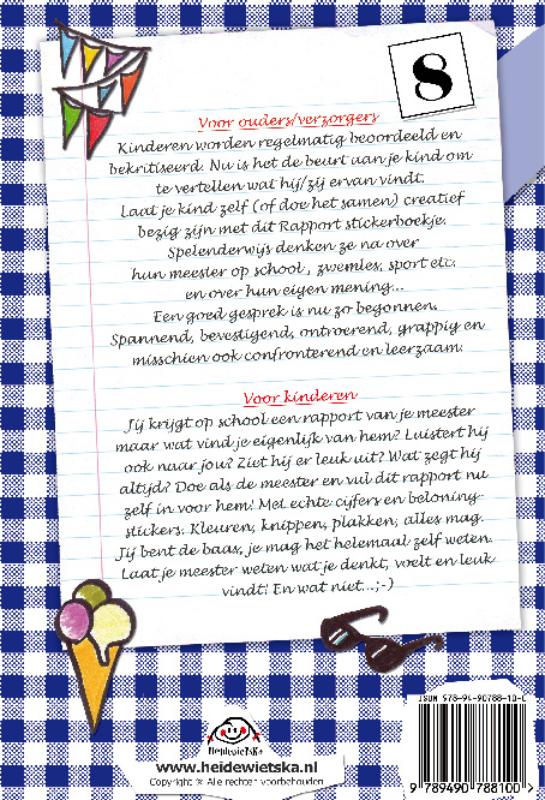 8
Voor ouders/verzorgers
Kinderen worden regelmatig beoordeeld en
bekritiseerd. Nu is het de beurt aan je kind om
te vertellen wat hij/zij ervan vindt.
Laat je kind zelf (of doe het samen) creatief
bezig zijn met dit Rapport stickerboekje.
Spelenderwijs denken ze na over
hun meester op school , zwemles, sport etc.
en over hun eigen mening...
Een goed gesprek is nu zo begonnen.
Spannend, bevestigend, ontroerend, grappig en
misschien ook confronterend en leerzaam.
Voor kinderen
Jij krijgt op school een rapport van je meester
maar wat vind je eigenlijk van hem? Luistert hij
ook naar jou? Ziet hij er leuk uit? Wat zegt hij
altijd? Doe als de meester en vul dit rapport nu
zelf in voor hem! Met echte cijfers en beloning-
stickers. Kleuren, knippen, plakken, alles mag.
Jij bent de baas, je mag het helemaal zelf weten.
Laat je meester weten wat je denkt, voelt en leuk
vindt! En wat niet...;-)
ISBN 978-94-90788-10-0
Heidewietska
www.heidewietska.nl
Copyright ® Alle rechten voorbehouden
9 789490 788100 >